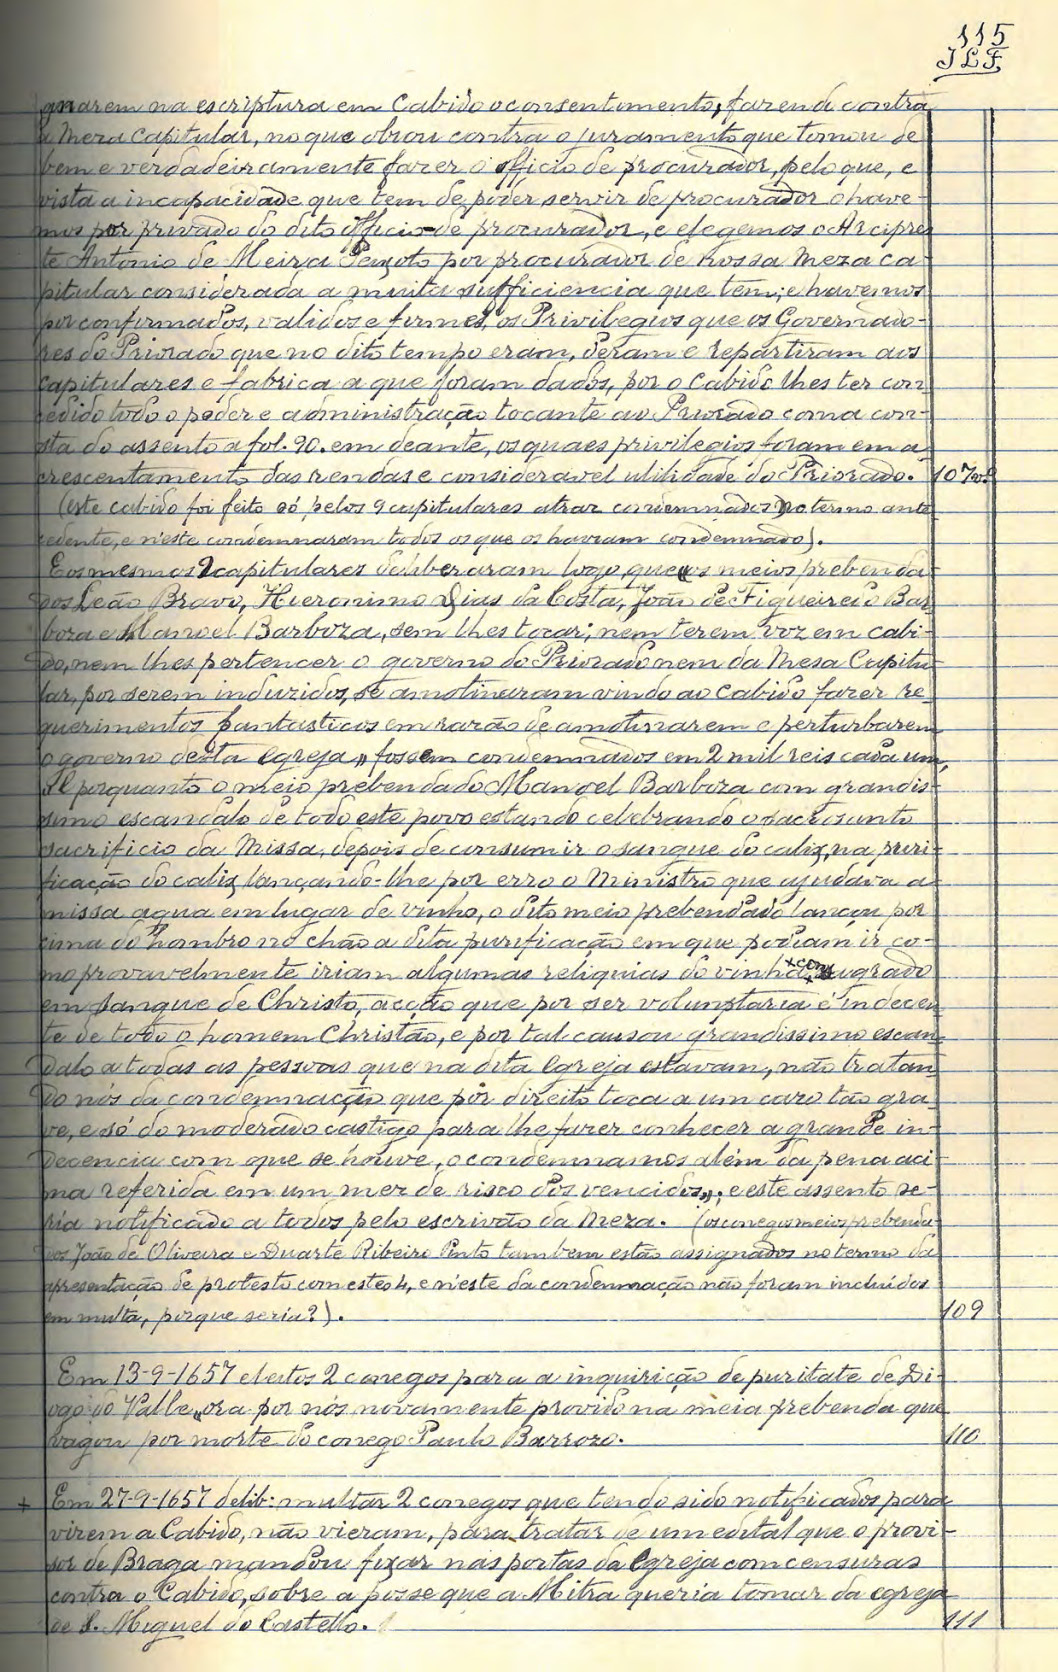 115
JLF
gnarem na escriptura em Cabido o consentimento, fazend contra
a Meza Capitular, no que obrou contra o juramento que tomou de
bem e verdadeiramente fazer o officio de procurador, pelo que, e
vista a incapacidade que tem de poder servir de procurador o have-
mos por privado do dito officio de procurador, e elegemos o Arcipres
te Antonio de Meira Peixoto por procurador de nossa Meza ca-
pitular considerada a muita sufficiencia que tem; e havemos
por confirmados, validos e firmes, os Privilegios que os Governado-
res do Priorado que no dito tempo eram, deram e repartiram aos
capitulares e fabrica a que foram dados, por o Cabido lhes ter con
cedido todo o poder e administração tocante ao Priorado como con-
sta do assento a fol. 90. em deante, os quaes privilegios foram em a
crescentamento das rendas e consideravel utilidade do Priorado. 107
(este cabido foi feito só pelos 9 capitulares atraz condemnados no termo ante
cedente, e n'este condemnaram todos os que os haviam condemnado).
E os mesmos 9 capitulares deliberaram logo, que os meios prebenda
dos Leão Bravo, Hieronimo Dias da Costa, João de Figueiredo Bar
boza e Manoel Barboza, sem lhes tocar, nem terem voz em cabi-
do, nem lhes pertencer o governo do Priorado nem da Mesa Capitu
lar, por serem induzidos, se amotinaram vindo ao Cabido fazer re-
querimentos fantasticos em razão de amotinarem e perturbarem
o governo desta Egreja, fossem condemnados em 2 mil reis cada um,
E porquanto o meio prebendado Manoel Barboza com grandis-
simo escandalo de todo este povo estando celebrando o sacrosanto
sacrificio da Missa, depois de consumir o sangue do calix, na puri-
ficação do calix lançando-lhe por erro o Ministro que ajudava a
missa agua em lugar de vinho, o dito meio prebendado lançou por
cima do hombro no chão a dita purificação em que podiam ir co-
mo provavelmente iriam algumas reliquias do vinho consagrado
em sangue de Christo, acção que por ser voluntaria é indecen
te de todo o homem Christão, e por tal causou grandissimo escan
dalo a todas as pessoas que na dita Egreja estavam, não tratan
do nós da condemnação que por direito toca a um cazo tão gra-
ve, e só do moderado castigo para lhe fazer conhecer a grande in-
decencia com que se houve, o condemnamos além da pena aci
ma referida em um mez de risco dos vencidos"; e este assento se-
ria notificado a todos pelo escrivão da Meza. (os conegos meios prebenda-
dos João de Oliveira e Duarte Ribeiro Pinto tambem estão assignados no termo da
apresentação de protesto com estes 4, e n'este da condemnação não foram incluidos
em multa, porque seria?). 109
Em 13-9-1657 eleitos 2 conegos para a inquirição de puritate de Di-
ogo do Valle, "ora por nós novamente provido na meia prebenda que
vagou por morte do conego Paulo Barrozo. 110
+ Em 27-9-1657 delib: multar 2 conegos que tendo sido notificados para
virem a Cabido, não vieram, para tratar de um edital que o provi-
sor de Braga mandou fixar nas portas da Egreja com censuras
contra o Cabido, sobre a posse que a Mitra queria tomar da egreja
de S. Miguel do Castello. 111